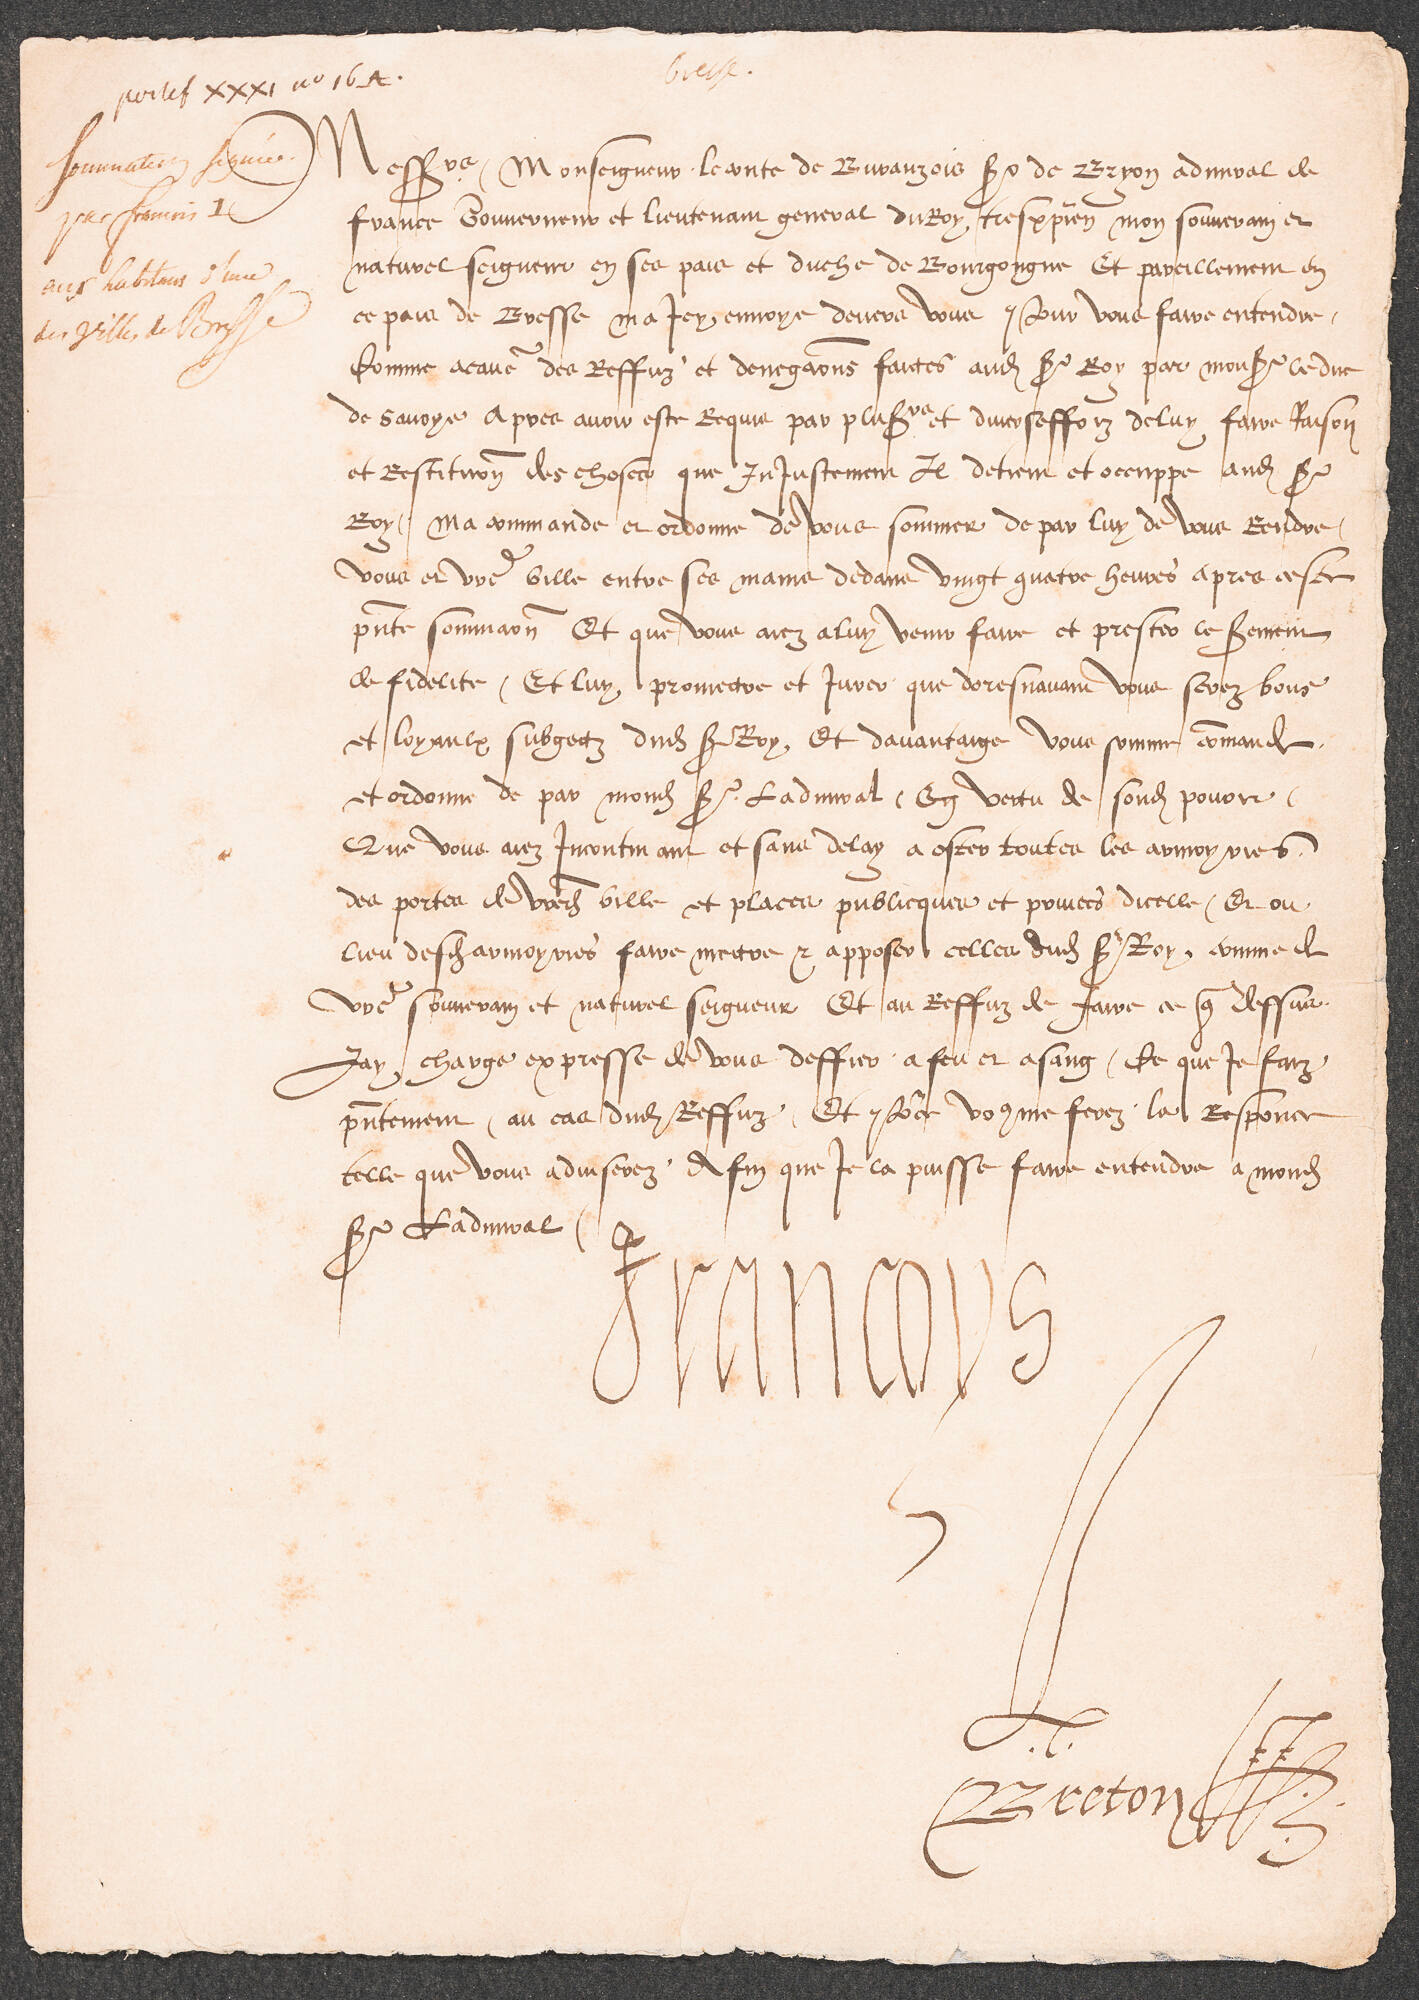 portef XXXI no 16 A.
bresse.
sommation signée
par francois I
aux habitans d'une
des Villes de Bresse
Messrs, Monseigneur le conte de Buzanzois sr de Bryon admiral de
france Gouverneur et lieutenant general du Roy trespien mon souverain et
naturel seigneur en ses pais et duche de Bourgongne Et pareillement en
ce pais de Bresse ma Icy envoye devers vous pour vous faire entendre,
Comme a cause des Reffuz et denegaons faictes aud sr Roy par monsr le duc
de Savoye Apres avoir este Requis par plusrs et divers effortz de luy faire Raison
et Restitucon des choses que Injustement Il detient et occuppe aud sr
Roy, Ma commande et ordonne de vous sommer de par luy de vous Rendre,
vous et vre ville entre ses mains dedans vingt quatre heures apres ceste
pnte sommaon Et que vous aiez a luy venir faire et prester le serment
de fidelite, Et luy promectre et Jurer que doresnavant vous serez bons
et loyaulx subgectz dud sr Roy, Et davantaige vous somme commande
et ordonne de par mond sr Ladmiral, En vertu de sond povoir,
Que vous aiez Incontinant et sans delay a oster toutes les armoyries
des portes de vred ville et places publicques et privees dicelle, Et ou
lieu desd armoyries faire mectre & apposer celles dud sr Roy, comme de
vre souverain et naturel seigneur Et au Reffuz de faire ce que dessus
Jay charge expresse de vous deffier a feu et a sang, Ce que Je faiz
pntement, au cas dud Reffuz, Et pource vo9 me ferez la Responce
telle que vous adviserez Afin que Je la puisse faire entendre a mond
sr Ladmiral,
Francoys
Breton